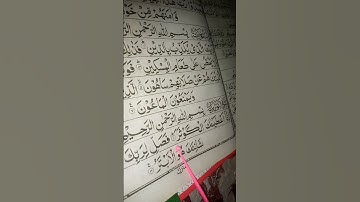 وَّاٰمَنَهُمْ مِّنْ خَوْ
بِسْمِ اللّٰهِ الرَّحْمٰنِ الرَّ
الَّذِیْ یُكَذِّبُ بِالدِّیْنِ فَذٰلِكَ
عَلٰى طَعَامِ الْمِسْكِیْنِ فَوَ
عَنْ صَلَاتِهِمْ سَاهُوْنَ الَّذِ
وَیَمْنَعُوْنَ الْمَاعُوْنَ
بِسْمِ اللّٰهِ الرَّحْمٰنِ الرَّحِیْمِ
الْكَوْثَرَ فَصَلِّ لِرَبِّكَ
شَانِئَكَ هُوَ الْاَبْتَرُ